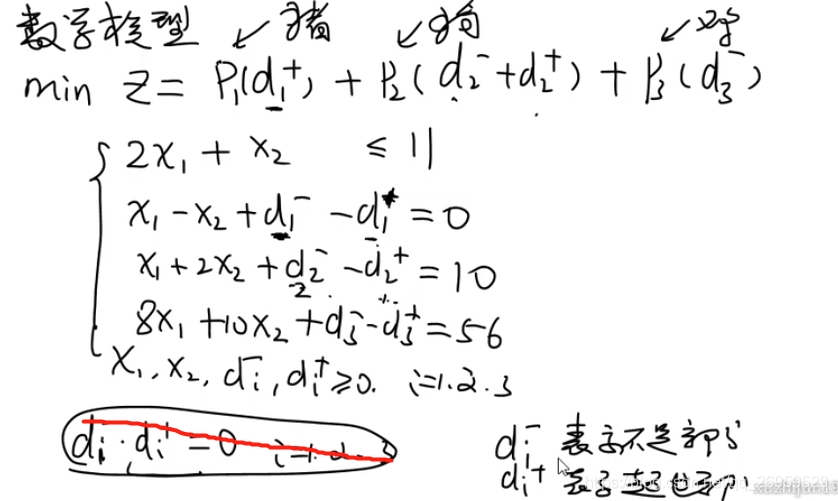 数学模型 ↙猪 ↙狗 ↙鸡
min Z = P₁(d₁⁺) + P₂(d₂⁻+d₂⁺) + P₃(d₃⁻)
2x₁ + x₂ ≤ 11
x₁ - x₂ + d₁⁻ - d₁⁺ = 0
x₁ + 2x₂ + d₂⁻ - d₂⁺ = 10
8x₁ + 10x₂ + d₃⁻ - d₃⁺ = 56
x₁, x₂, dᵢ⁻, dᵢ⁺ ≥ 0. i=1.2.3
dᵢ⁻ 表示不足部分
dᵢ⁺ 表示超出部分